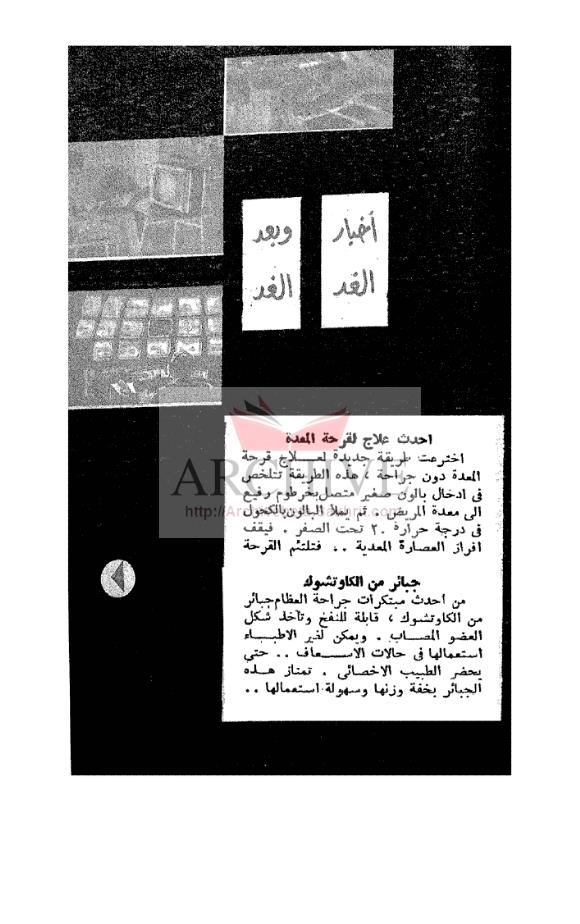 أخبار
الغد
وبعد
الغد
احدث علاج لقرحة المعدة
اخترعت طريقة جديدة لعـــلاج قرحة
المعدة دون جراحة ، هذه الطريقة تتلخص
فى ادخال بالون صغير متصل بخرطوم رفيع
الى معدة المريض . ثم يملأ البالون بالكحول
فى درجة حرارة ٢٠ تحت الصفر . فيقف
افراز العصارة المعدية .. فتلتئم القرحة
جبائر من الكاوتشوك
من احدث مبتكرات جراحة العظام جبائر
من الكاوتشوك ، قابلة للنفخ وتأخذ شكل
العضو المصـــاب . ويمكن لغير الاطبـــاء
استعمالها فى حالات الاســـعاف .. حتى
يحضر الطبيب الاخصائى . تمتاز هـــذه
الجبائر بخفة وزنها وسهولة استعمالها ..
ARCHIVE